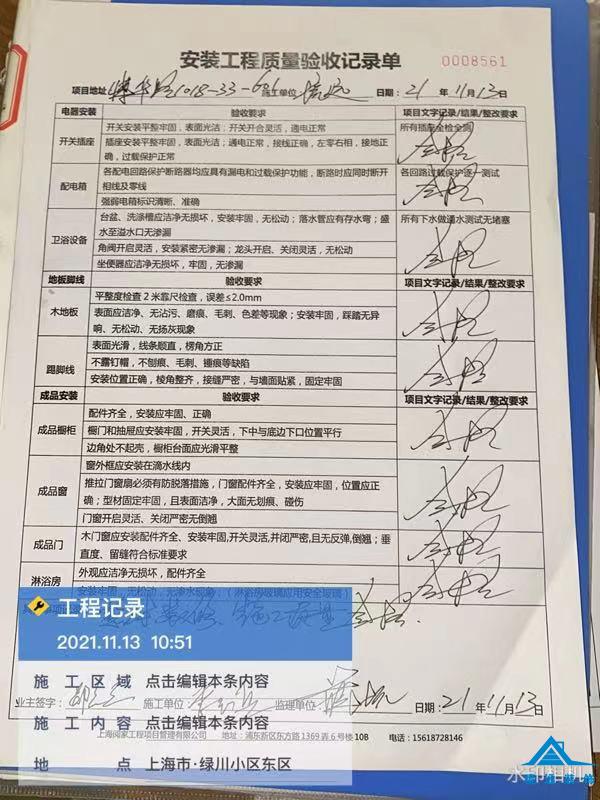 安装工程质量验收记录单
0008561
项目地址 1018-33-601 施工单位: 日期: 21年11月13日
电器安装 验收要求 项目文字记录/结果/整改要求
开关插座
开关安装平整牢固，表面光洁；开关开合灵活，通电正常
所有插座全检全测
插座安装平整牢固，表面光洁；通电正常，接线正确，左零右相，接地正
确，过载保护正常
配电箱
各配电回路保护断路器均应具有漏电和过载保护功能，断路时应同时断开
各回路过载保护逐一测试
相线及零线
强弱电箱标识清晰、准确
卫浴设备
台盆、洗涤槽应洁净无损坏，安装牢固，无松动；落水管应有存水弯；盛
所有下水做通水测试无堵塞
水至溢水口无渗漏
角阀开启灵活，安装紧密无渗漏；龙头开启、关闭灵活，无松动
坐便器应洁净无损坏，牢固，无渗漏
地板脚线 验收要求 项目文字记录/结果/整改要求
木地板
平整度检查2米靠尺检查，误差≤2.0mm
表面应洁净、无沾污、磨痕、毛刺、色差等现象；安装牢固，踩踏无异
响、无松动、无扬灰现象
踢脚线
表面光滑，线条顺直，楞角方正
不露钉帽，不刨痕、毛刺、锤痕等缺陷
安装位置正确，棱角整齐，接缝严密，与墙面贴紧，固定牢固
成品安装 验收要求 项目文字记录/结果/整改要求
成品橱柜
配件齐全，安装应牢固、正确
橱门和抽屉应安装牢固，开关灵活，下中与底边下口位置平行
边角处不起壳，橱柜台面应光滑平整
成品窗
窗外框应安装在滴水线内
推拉门窗扇必须有防脱落措施，门窗配件齐全，安装应牢固，位置应正
确；型材固定牢固，且表面洁净，大面无划痕、碰伤
门窗开启灵活、关闭严密无倒翘
成品门
木门窗应安装配件齐全、安装牢固,开关灵活,并闭严密,且无反弹,倒翘；垂
直度、留缝符合标准要求
淋浴房
外观应洁净无损坏，配件齐全
安装牢固，无松动，无渗水现象；（淋浴房玻璃应用安全玻璃）
工程记录
2021.11.13 10:51
施工区域 点击编辑本条内容
业主签字: 施工单位: 监理单位: 日期: 21年11月13日
施工内容 点击编辑本条内容
地址：浦东新区东方路1369弄6号楼10B 电话：15618728146
地点 上海市·绿川小区东区
水印相机